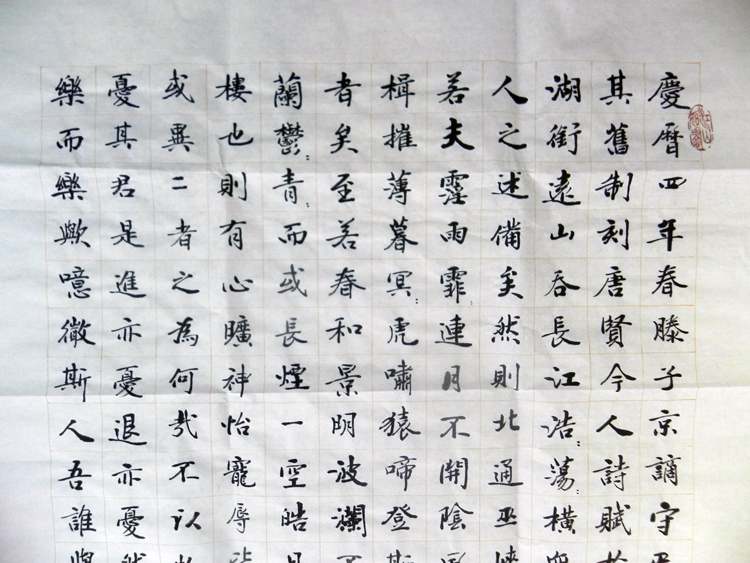 慶曆四年春滕子京謫守
其舊制刻唐賢今人詩賦
湖銜遠山吞長江浩〻蕩〻橫
人之述備矣然則北通巫
若夫霪雨霏〻連月不開陰
楫摧薄暮冥〻虎嘯猿啼登
者矣至若春和景明波瀾
蘭鬱〻青〻而或長煙一空皓
樓也則有心曠神怡寵辱
或異二者之為何哉不以
憂其君是進亦憂退亦憂
樂而樂歟噫微斯人吾誰